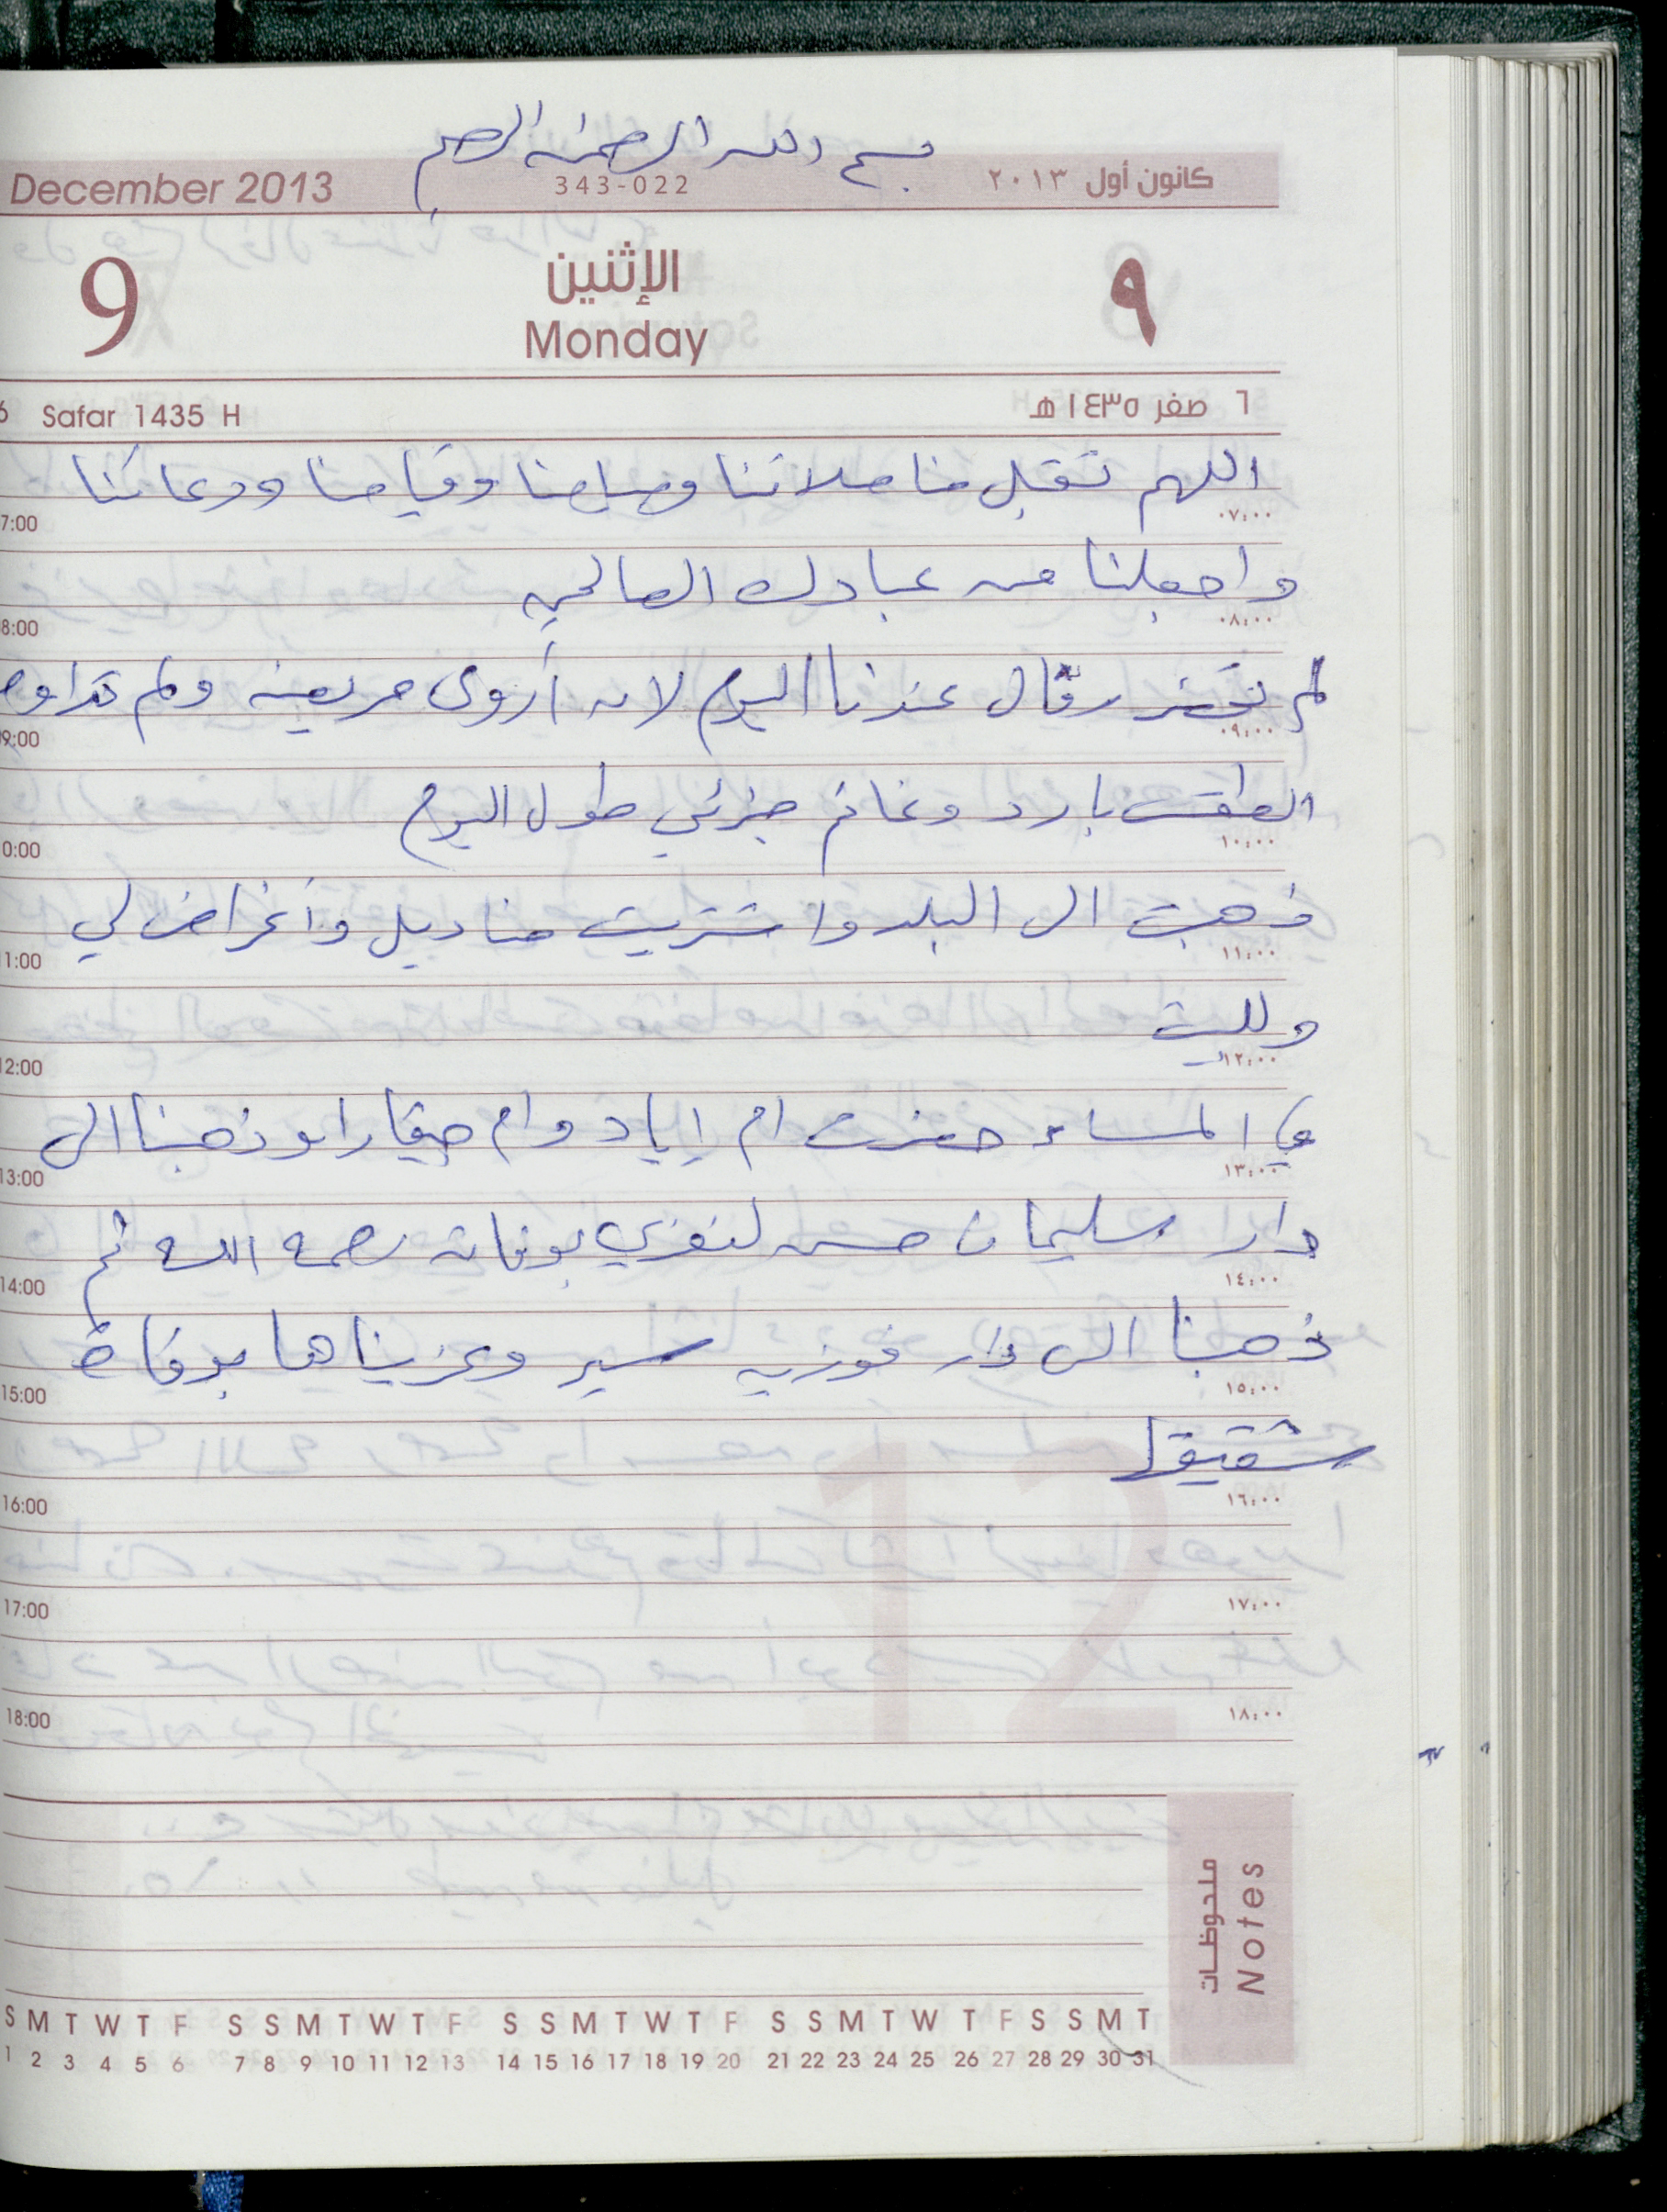 بسم الله الرحمن الرحيم
December 2013 343-022 كانون أول ٢٠١٣
9 الإثنين ٩
Monday
6 Safar 1435 H ٦ صفر ١٤٣٥ هـ
اللهم تقبل منا صلاتنا وصيامنا وقيامنا ودعائنا
7:00 ٠٧:٠٠
واجعلنا من عبادك الصالحين
8:00 ٠٨:٠٠
لم تحضر رقال عندنا اليوم لان أروى مريضه ولم تداوم
9:00 ٠٩:٠٠
الطقس بارد وغائم جزئي طول اليوم
0:00 ١٠:٠٠
ذهبت الى البلد واشتريت مناديل وأغراض لي
1:00 ١١:٠٠
وللبيت
12:00 ١٢:٠٠
في المساء حضرت ام إياد وام وذهبنا الى
13:00 ١٣:٠٠
دار سليمان حسن لنعزي بوفاته رحمه الله ثم
14:00 ١٤:٠٠
ذهبنا الى دار فوزيه وعزيناها بوفاة
15:00 ١٥:٠٠
شقيقها
16:00 ١٦:٠٠
17:00 ١٧:٠٠
18:00 ١٨:٠٠
ملحوظات
Notes
S M T W T F S S M T W T F S S M T W T F S S M T W T F S S M T
1 2 3 4 5 6 7 8 9 10 11 12 13 14 15 16 17 18 19 20 21 22 23 24 25 26 27 28 29 30 31